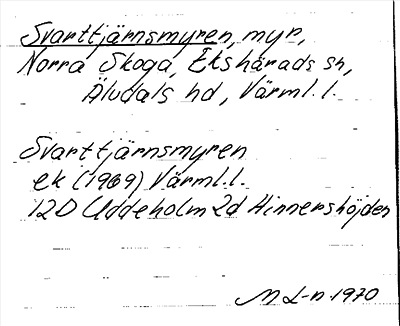 Svarttjärnsmyren, myr,
Norra Skoga, Ekshärads sn,
Äludals hd, Värml. l.
Svarttjärnsmyren
ek (1969) Värml. l.
12D Uddeholm 2d Hinnershöjden
M L-n 1970